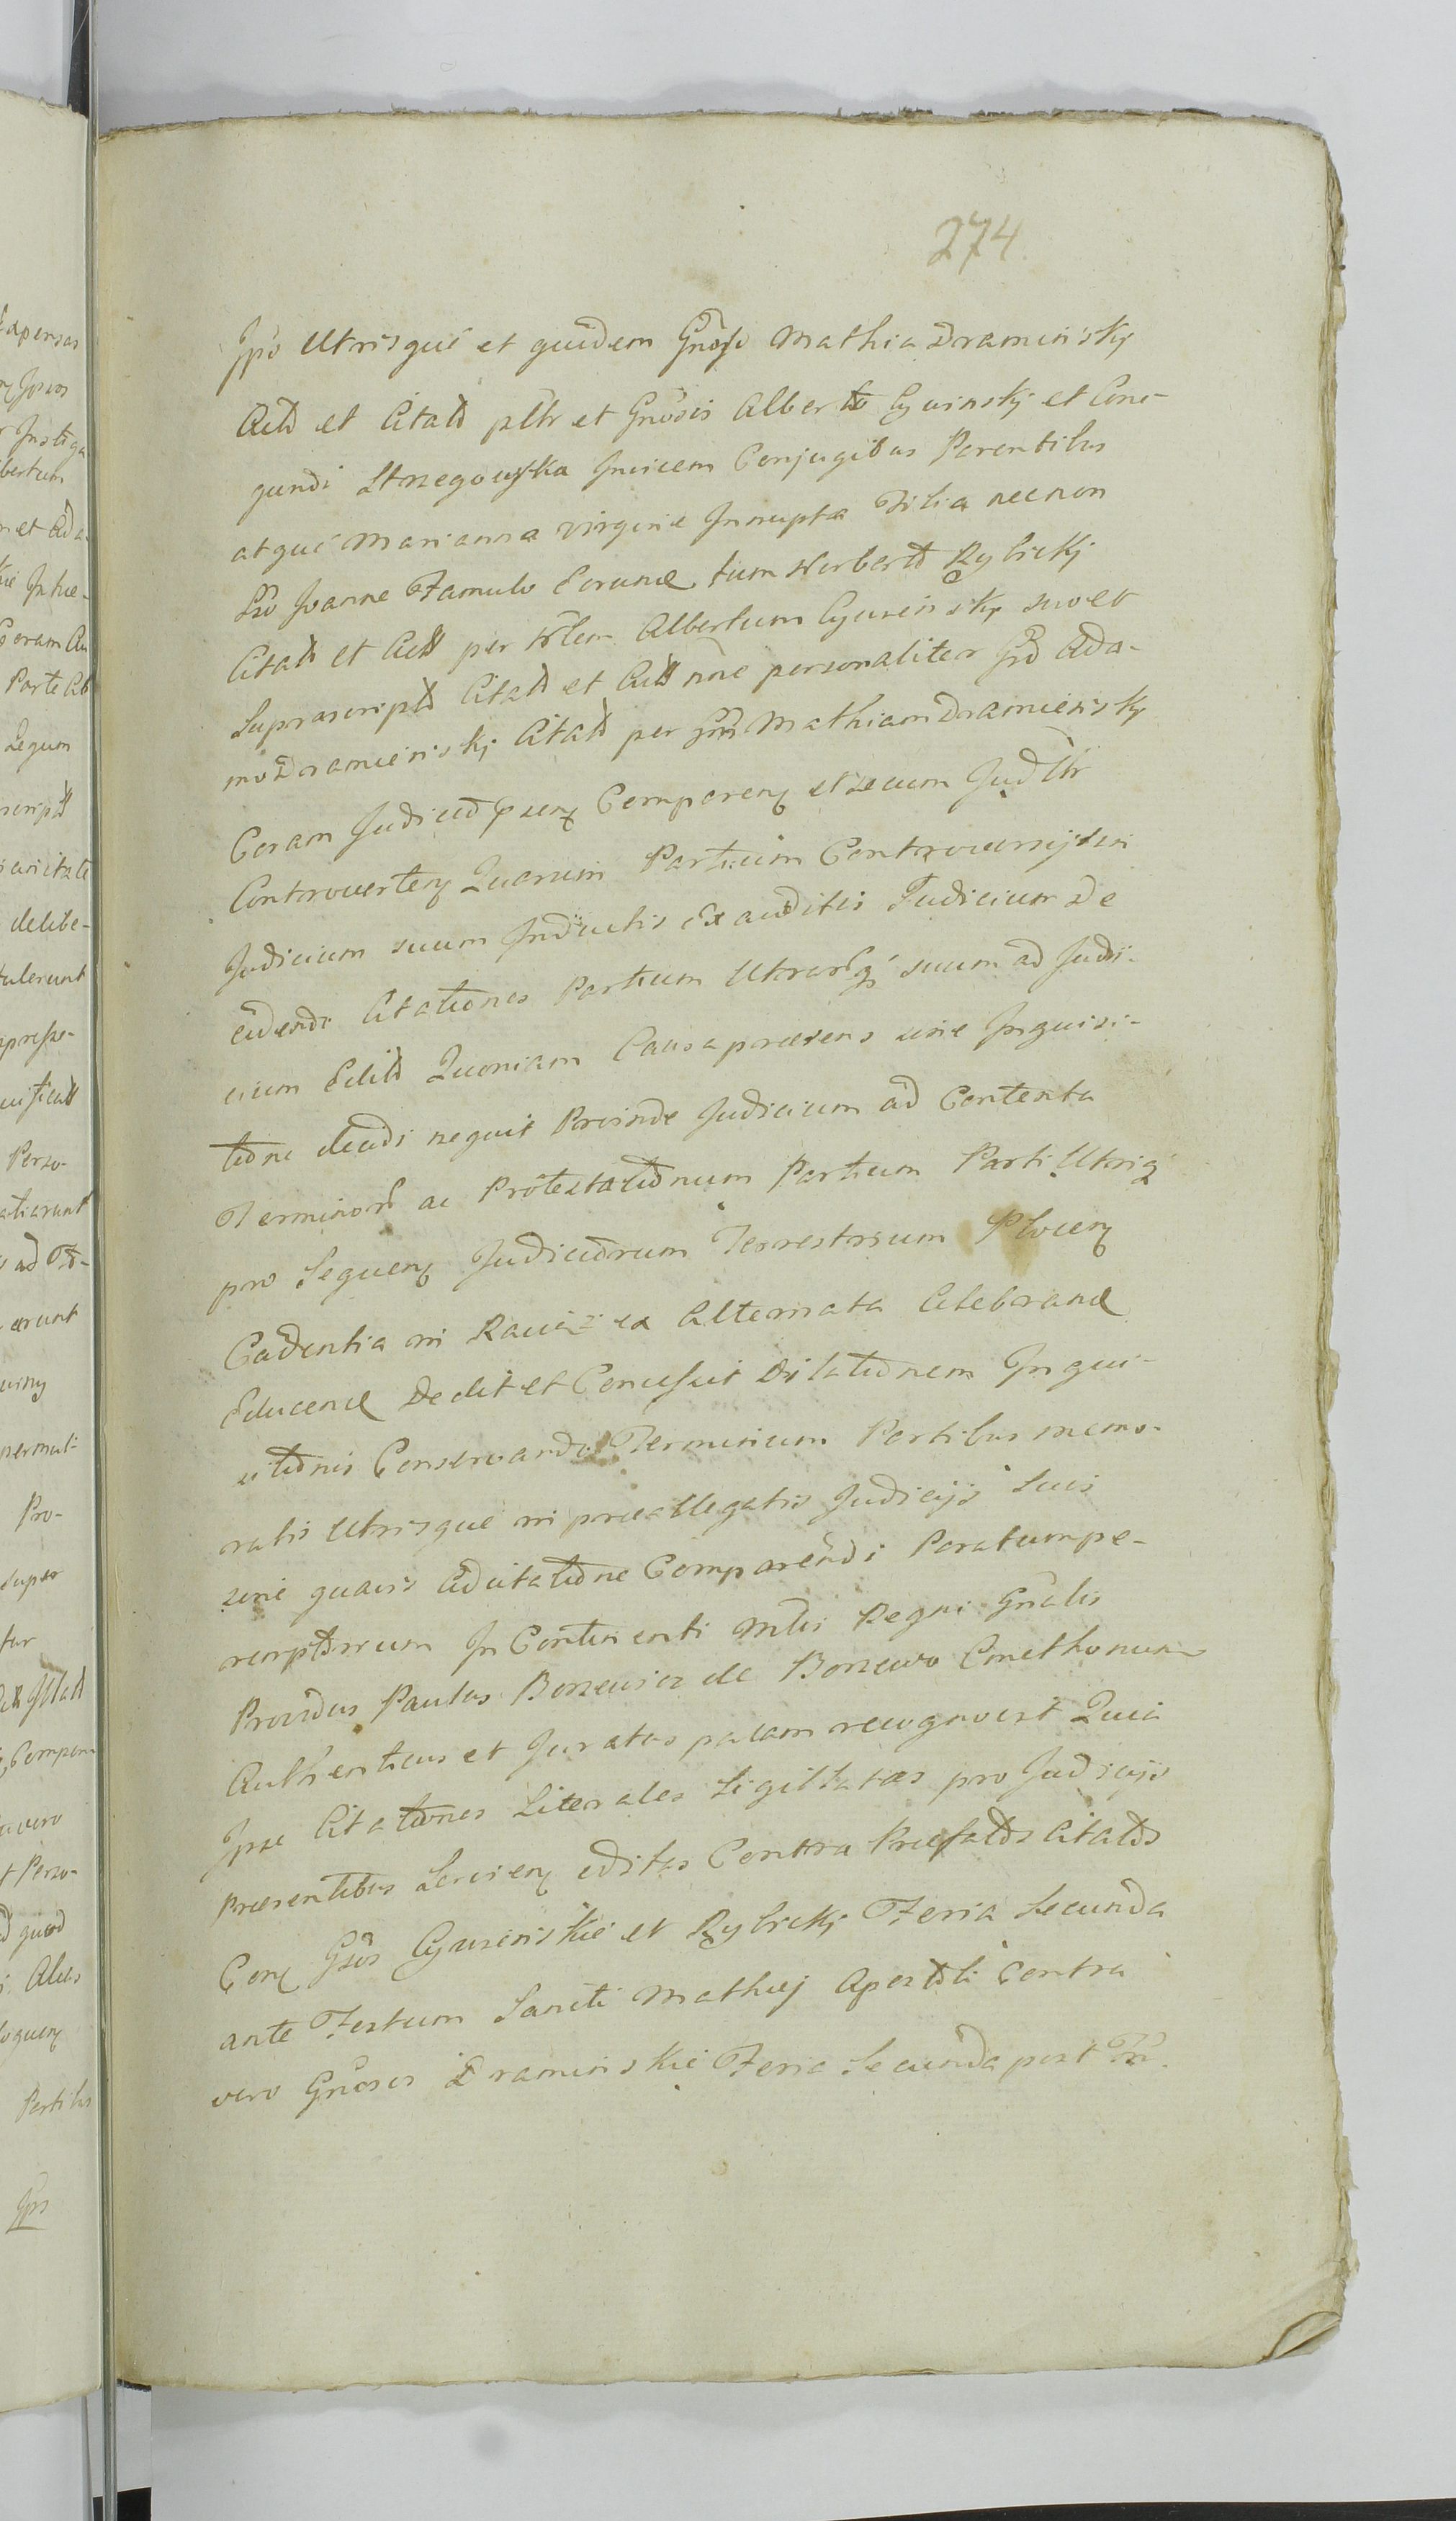 274.
Ipso Utrisque et quidem Gnoso Mathia Draminsky
Acto et Citato pltr et Gnosis Alberto Cywinsky et Cune-
gundi Strzegowska Invicem Conjugibus Parentibus
atque Marianna virgine Innupta Filia necnon
Lso Joanne Famulo Eorund tum Norberto Rybicky
Citatis et Actt per Nblem Albertum Cywinsky suo et
Suprascriptt Citatt et Actt nne personaliter Gso Ada-
mo Dramiensky Citato per Gsm Mathiam Dramiensky
Coram Judicio Psenz Comparenz et secum Judltr
Controvertenz Quarum Partium Controversijs in
Judicium suum Inductis Exauditis Judicium De
cidendo Citationes Partium Utrarq suum ad Judi-
cium Edittt Quoniam Causa præsens sine Inquisi-
tione decidi nequit Proinde Judicium ad Contenta
Terminor ac Protestationum Partium Parti Utriq
pro Sequenz Judiciorum Terrestrium Plocenz
Cadentia in Raciąż ex Alternata Celebrand
Educend Dedit et Concessit Dilationem Inqui-
sitionis Conservando Terminum Partibus memo-
ratis Utrisque in præallegatis Judicijs Suis
sine quavis Adcitatione Comparendi Peratumpe-
remptorium In Continenti Mltis Regni Gnalis
Providus Paulus Borzewicz de Borzewo Cmethonum
Authenticus et Juratus palam recognovit Quia
Ipse Citationes Literales Sigillatas pro Judicijs
Præsentibus Servienz editas Contra Præfatos Citatos
Conz Gsos Cywinskie et Rybicky Feria Secunda
ante Festum Sancti Mathæj Apostoli Contra
vero Gnosos Draminskie Feria Secunda post Fm.